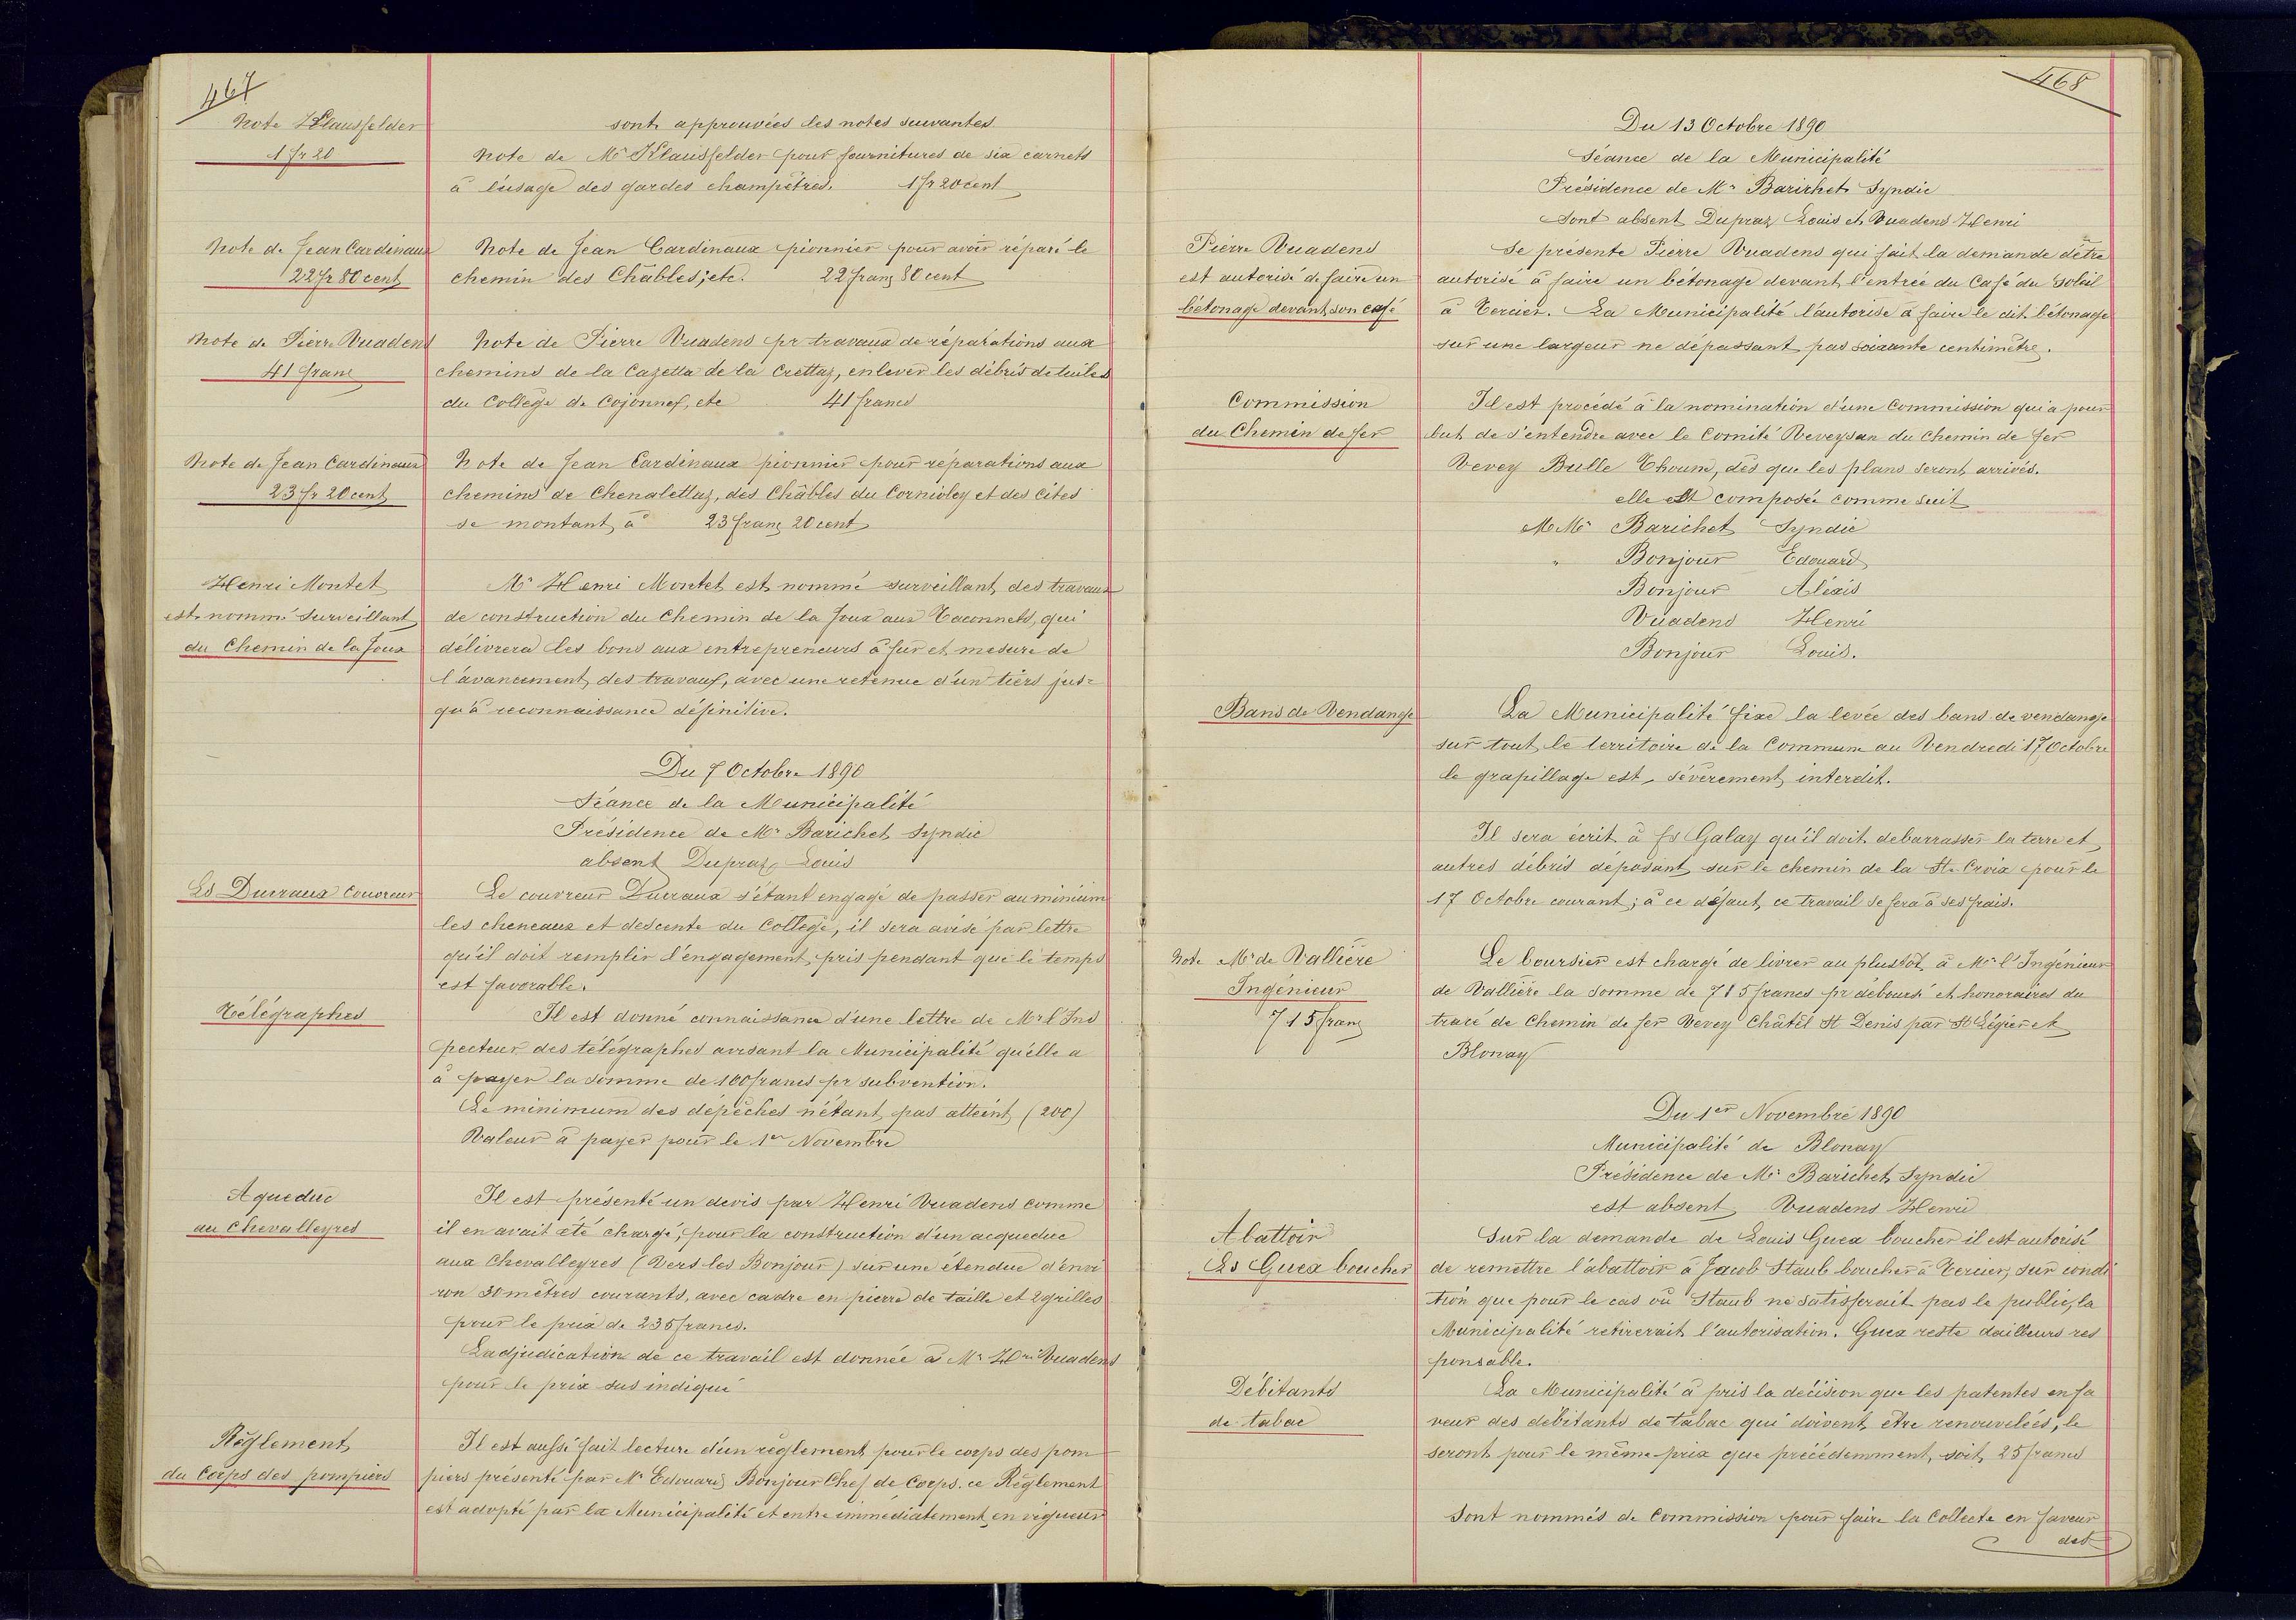 467
Note Klausfelder
1 fr 20
sont approuvées les notes suivantes
Note de Mr Klausfelder pour fournitures de six carnets
à l'usage des gardes champêtres. 1 fr 20 cent
Note de Jean Cardinaux
22 fr 80 cent
Note de Jean Cardinaux pionnier pour avoir réparé le
chemin des Châbles, etc. 22 franc 80 cent
Note de Pierre Vuadens
41 franc
Note de Pierre Vuadens pr travaux de réparations aux
chemins de la Cazetta de la Crettaz, enlever les débris de tuiles
du Collège de Cojonnex, etc 41 francs
Note de Jean Cardinaux
23 fr 20 cent
Note de Jean Cardinaux pionnier pour réparations aux
chemins de Chenalettaz, des Châbles du Cornioley et des Cites
se montant à 23 franc 20 cent
Henri Montet
est nommé surveillant
du Chemin de la Joux
Mr Henri Montet est nommé surveillant des travaux
de construction du Chemin de la Joux aux Taconnets, qui
délivrera les bons aux entrepreneurs à fur et mesure de
l'avancement des travaux, avec une retenue d'un tiers jus=
qu'à reconnaissance définitive.
Du 7 Octobre 1890
Séance de la Municipalité
Présidence de Mr Barichet Syndic
absent Dupraz Louis
Ls Ducraux couvreur
Le couvreur Ducraux s'étant engagé de passer au minium
les cheneaux et descente du Collège, il sera avisé par lettre
qu'il doit remplir l'engagement pris pendant que le temps
est favorable.
Télégraphes
Il est donné connaissance d'une lettre de Mr l'Ins
pecteur des télégraphes avisant la Municipalité qu'elle a
à payer la somme de 100 francs pr subvention.
Le minimum des dépêches n'étant pas atteint (200)
Valeur à payer pour le 1er Novembre
Aqueduc
au Chevalleyres
Il est présenté un devis par Henri Vuadens comme
il en avait été chargé, pour la construction d'un acqueduc
aux Chevalleyres (Vers les Bonjour) sur une étendue d'envi
ron 30 mètres courants, avec cadre en pierre de taille et 2 grilles
pour le prix de 235 francs.
L'adjudication de ce travail est donnée à Mr Hri Vuadens
pour le prix sus indiqué
Règlement
du Corps des pompiers
Il est aussi fait lecture d'un règlement pour le corps des pom
piers présenté par Mr Edouard Bonjour Chef de Corps. ce Règlement
est adopté par la Municipalité et entre immédiatement en vigueur
468
Du 13 Octobre 1890
Séance de la Municipalité
Présidence de Mr Barichet Syndic
Sont absent Dupraz Louis et Vuadens Henri
Pierre Vuadens
est autorisé de faire un
bétonage devant son café
Se présente Pierre Vuadens qui fait la demande d'être
autorisé à faire un bétonage devant l'entrée du Café du Soleil
à Tercier. La Municipalité l'autorise à faire le dit bétonage
sur une largeur ne dépassant pas soixante centimètre.
Commission
du Chemin de fer
Il est procédé à la nomination d'une Commission qui a pour
but de s'entendre avec le Comité Veveysan du Chemin de fer
Vevey Bulle Thoune, dès que les plans seront arrivés.
elle est composée comme suit
MMr Barichet Syndic
" Bonjour Edouard
Bonjour Aléxis
Vuadens Henri
Bonjour Louis.
Bans de Vendange
La Municipalité fixe la levée des bans de vendange
sur tout le territoire de la Commune au Vendredi 17 Octobre
le grapillage est sévèrement interdit.
Il sera écrit à fs Galay qu'il doit debarrasser la terre et
autres débris déposant sur le chemin de la Ste Croix pour le
17 Octobre courant; à ce défaut, ce travail se fera à ses frais.
Note Mr de Vallière
Ingénieur
715 franc
Le boursier est chargé de livrer au plustôt à Mr l'Ingénieur
de Vallière la somme de 715 francs pr déboursé et honoraires du
tracé de Chemin de fer Vevey Châtel St Denis par St Légier et
Blonay
Du 1er Novembre 1890
Municipalité de Blonay
Présidence de Mr Barichet Syndic
est absent Vuadens Henri
Abattoir
Ls Guex boucher
Sur la demande de Louis Guex boucher il est autorisé
de remettre l'abattoir à Jacob Staub boucher à Tercier, sur condi
tion que pour le cas où Staub ne satisferait pas le public, la
Municipalité retirerait l'autorisation. Guex reste dailleurs res
ponsable.
Débitants
de tabac
La Municipalité à pris la décision que les patentes en fa
veur des débitants de tabac qui doivent être renouvelées, le
seront pour le même prix que précédemment, soit 25 francs
Sont nommés de Commission pour faire la Collecte en faveur
des